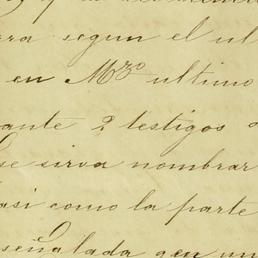 rra segun el ul
en Mzo ultimo
ante 2 testigos
se sirva nombrar
asi como la parte
señalada